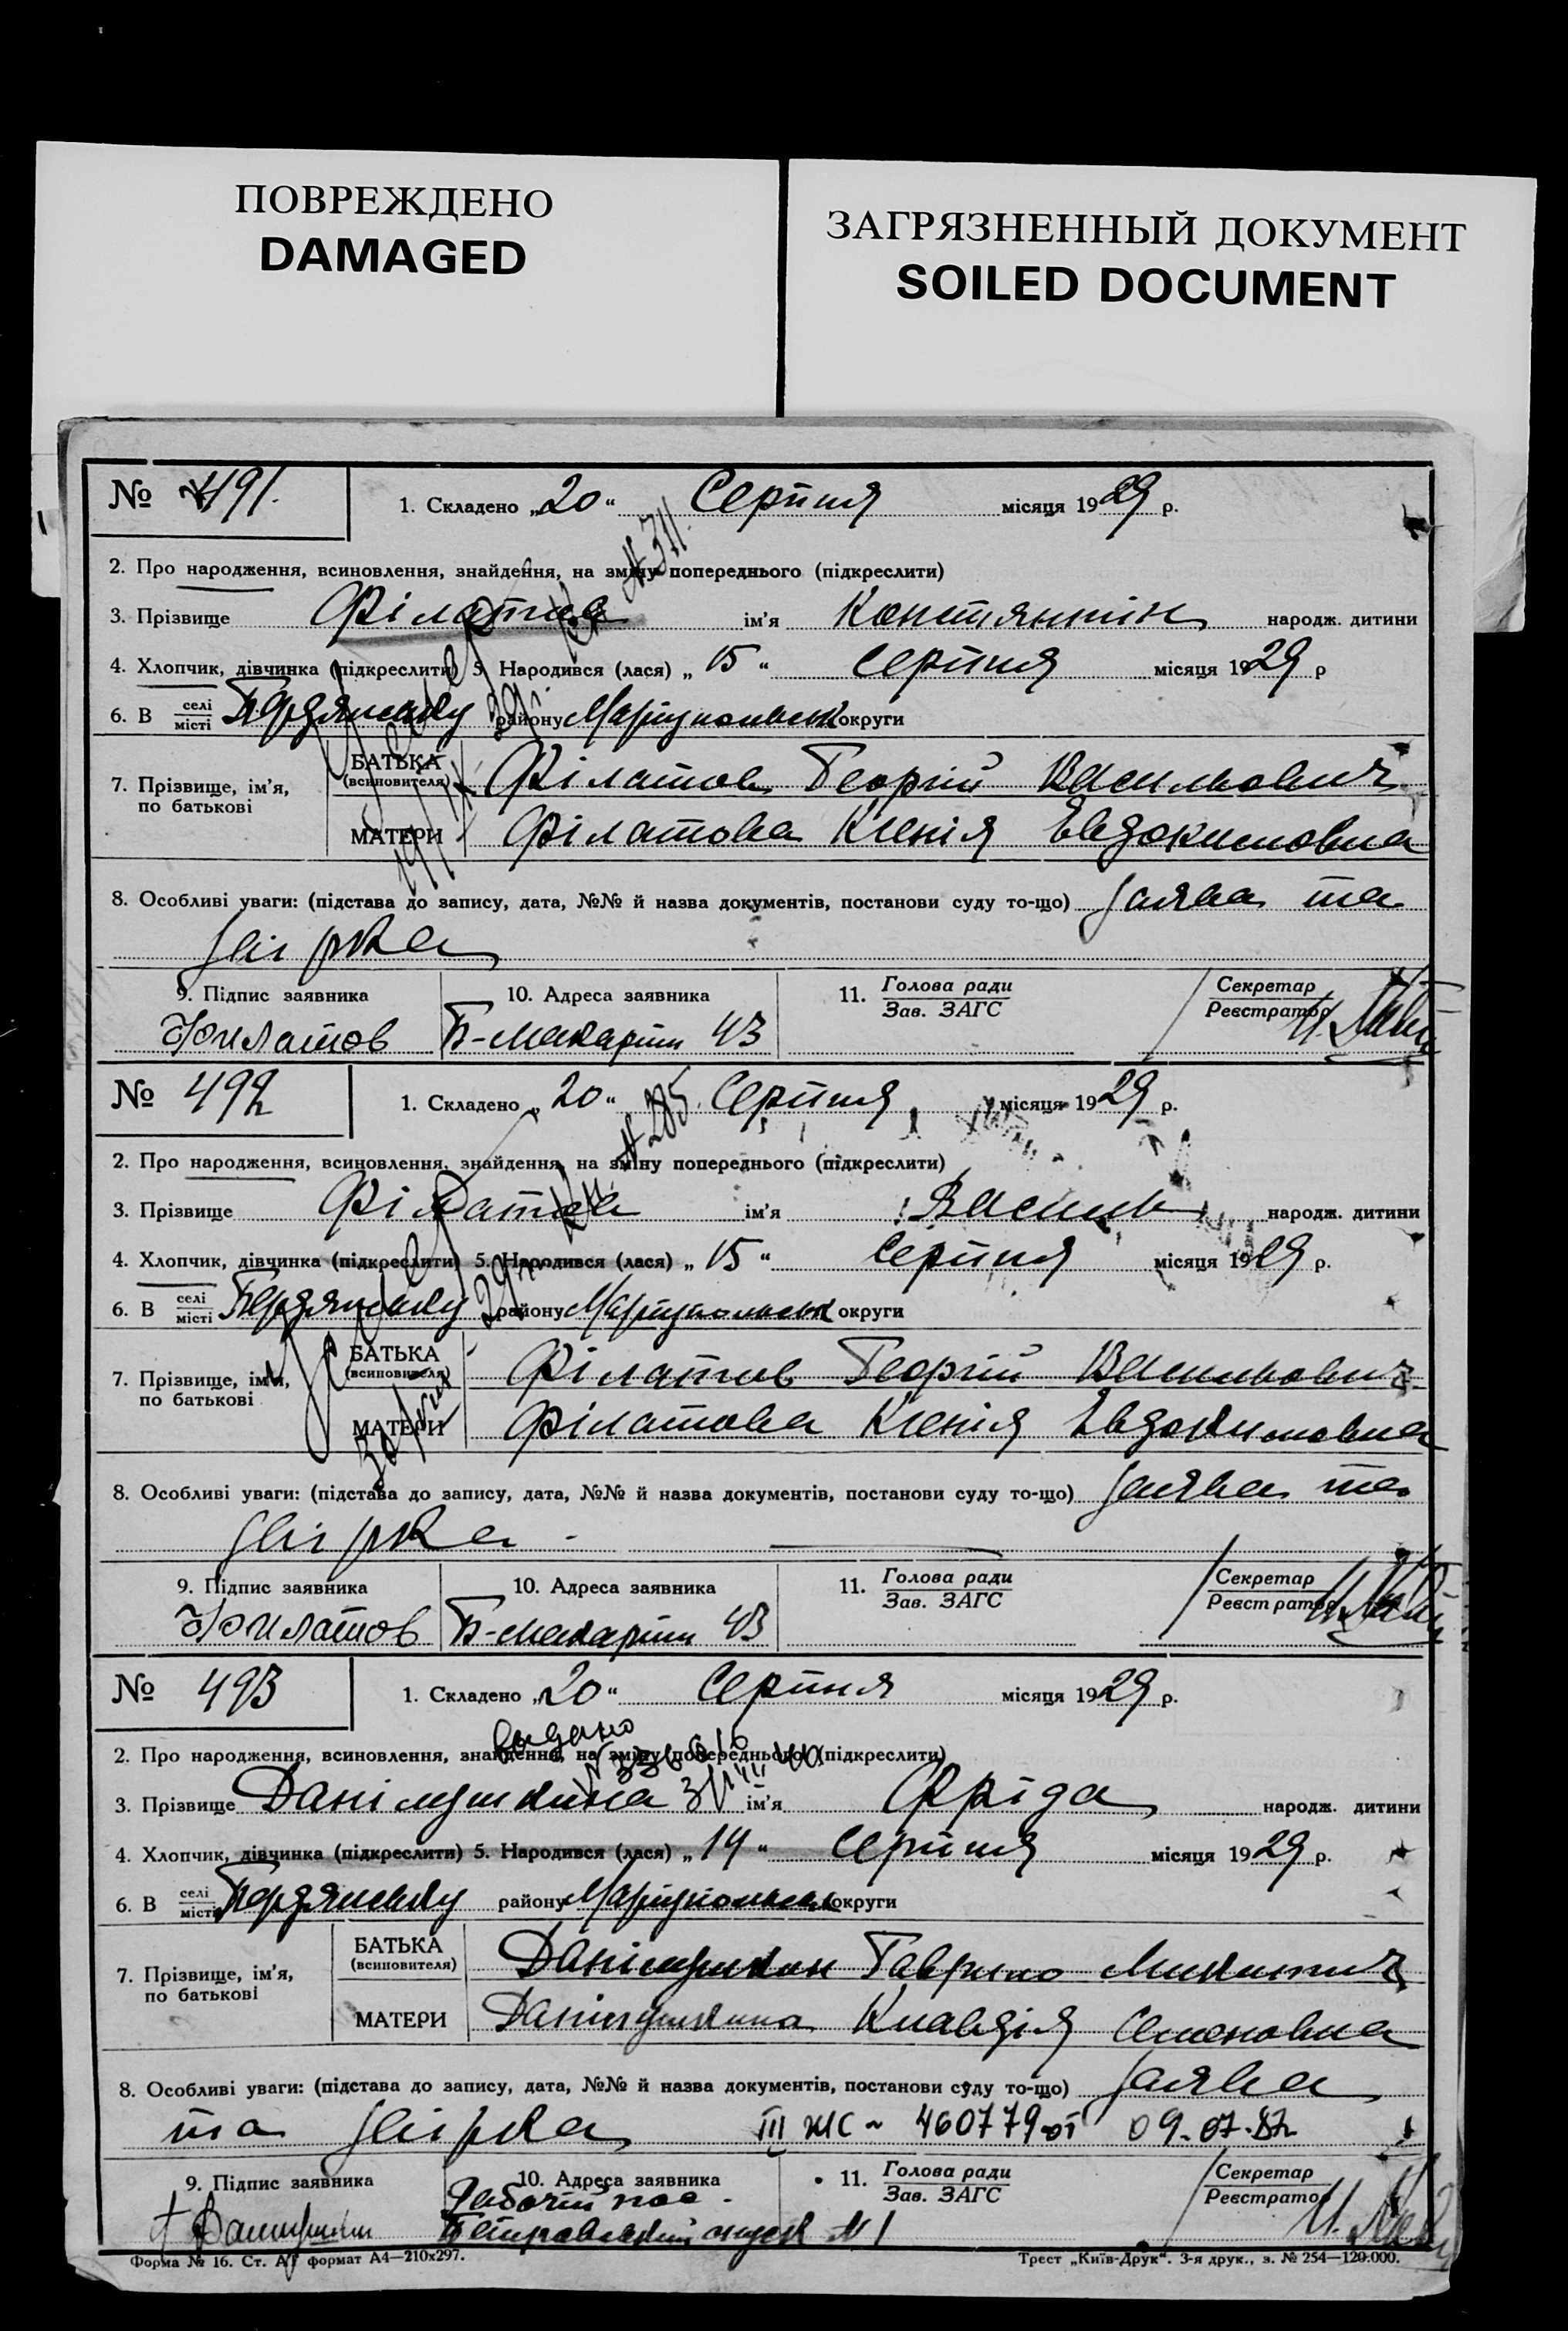 ПОВРЕЖДЕНО
DAMAGED
ЗАГРЯЗНЕННЫЙ ДОКУМЕНТ
SOILED DOCUMENT
№ 491.
1. Складено „20“ Серпня місяця 1929 р.
2. Про народження, всиновлення, знайдення, на зміну попереднього (підкреслити)
3. Прізвище Філатов ім’я Констянтін народж. дитини
4. Хлопчик, дівчинка (підкреслити) 5. Народився (лася) „15“ Серпня місяця 1929 р
6. В селі місті Бердянську району Маріупольськ округи
7. Прізвище, ім’я, по батькові
БАТЬКА (всиновителя) Філатов Георгій Васильович
МАТЕРИ Філатова Ксенія Евдокимовна
8. Особливі уваги: (підстава до запису, дата, №№ й назва документів, постанови суду то-що) Заява та
звірка
9. Підпис заявника
Филатов
10. Адреса заявника
Б-Макарти 43
11. Голова ради
Зав. ЗАГС
Секретар
Реєстратор
№ 492
1. Складено „20“ Серпня місяця 1929 р.
№ 285
2. Про народження, всиновлення, знайдення, на зміну попереднього (підкреслити)
3. Прізвище Філатов ім’я Василь народж. дитини
4. Хлопчик, дівчинка (підкреслити) 5. Народився (лася) „15“ Серпня місяця 1929 р.
6. В селі місті Бердянську району Маріупольськ округи
7. Прізвище, ім’я, по батькові
БАТЬКА (всиновителя) Філатов Георгій Васильович
МАТЕРИ Філатова Ксенія Евдокимовна
8. Особливі уваги: (підстава до запису, дата, №№ й назва документів, постанови суду то-що) Заява та
звірка
9. Підпис заявника
Филатов
10. Адреса заявника
Б-Макарти 43
11. Голова ради
Зав. ЗАГС
Секретар
Реєстратор
№ 493
1. Складено „20“ Серпня місяця 1929 р.
видано
2. Про народження, всиновлення, знайдення, на зміну попереднього (підкреслити)
3. Прізвище Данілушкина ім’я Фріда народж. дитини
4. Хлопчик, дівчинка (підкреслити) 5. Народився (лася) „14“ Серпня місяця 1929 р.
6. В селі місті Бердянську району Маріупольськ округи
7. Прізвище, ім’я, по батькові
БАТЬКА (всиновителя) Данілушкин Гаврило Микитич
МАТЕРИ Данілушкина Клавдія Семеновна
8. Особливі уваги: (підстава до запису, дата, №№ й назва документів, постанови суду то-що) Заява
та звірка III ЖС ~ 460779 от 09.07.87г.
9. Підпис заявника
10. Адреса заявника
11. Голова ради
Зав. ЗАГС
Секретар
Реєстратор
Форма № 16. Ст. А4 формат А4—210х297.
Трест „Київ-Друк“. 3-я друк., з. № 254—120.000.